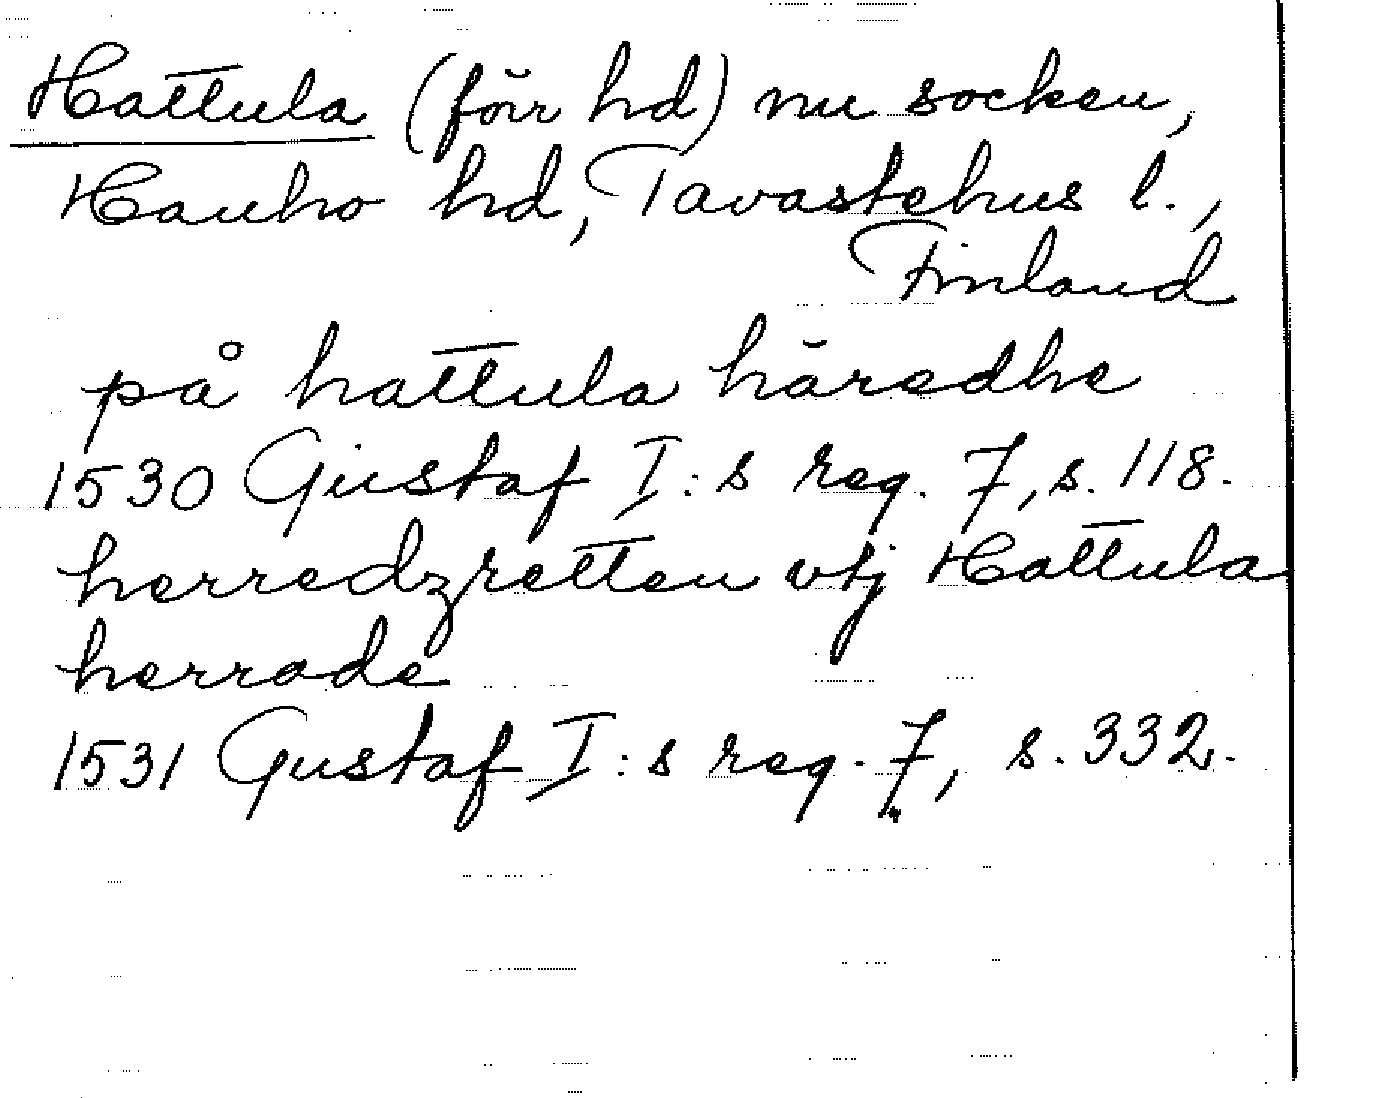 Hattula (förr hd) nu socken,
Hauho hd, Tavastehus l.,
Finland
på hattula häredhe
1530 Gustaf I:s reg. 7, s. 118.
herredzretten vtj Hattula
herrade
1531 Gustaf I:s reg. 7, s. 332.